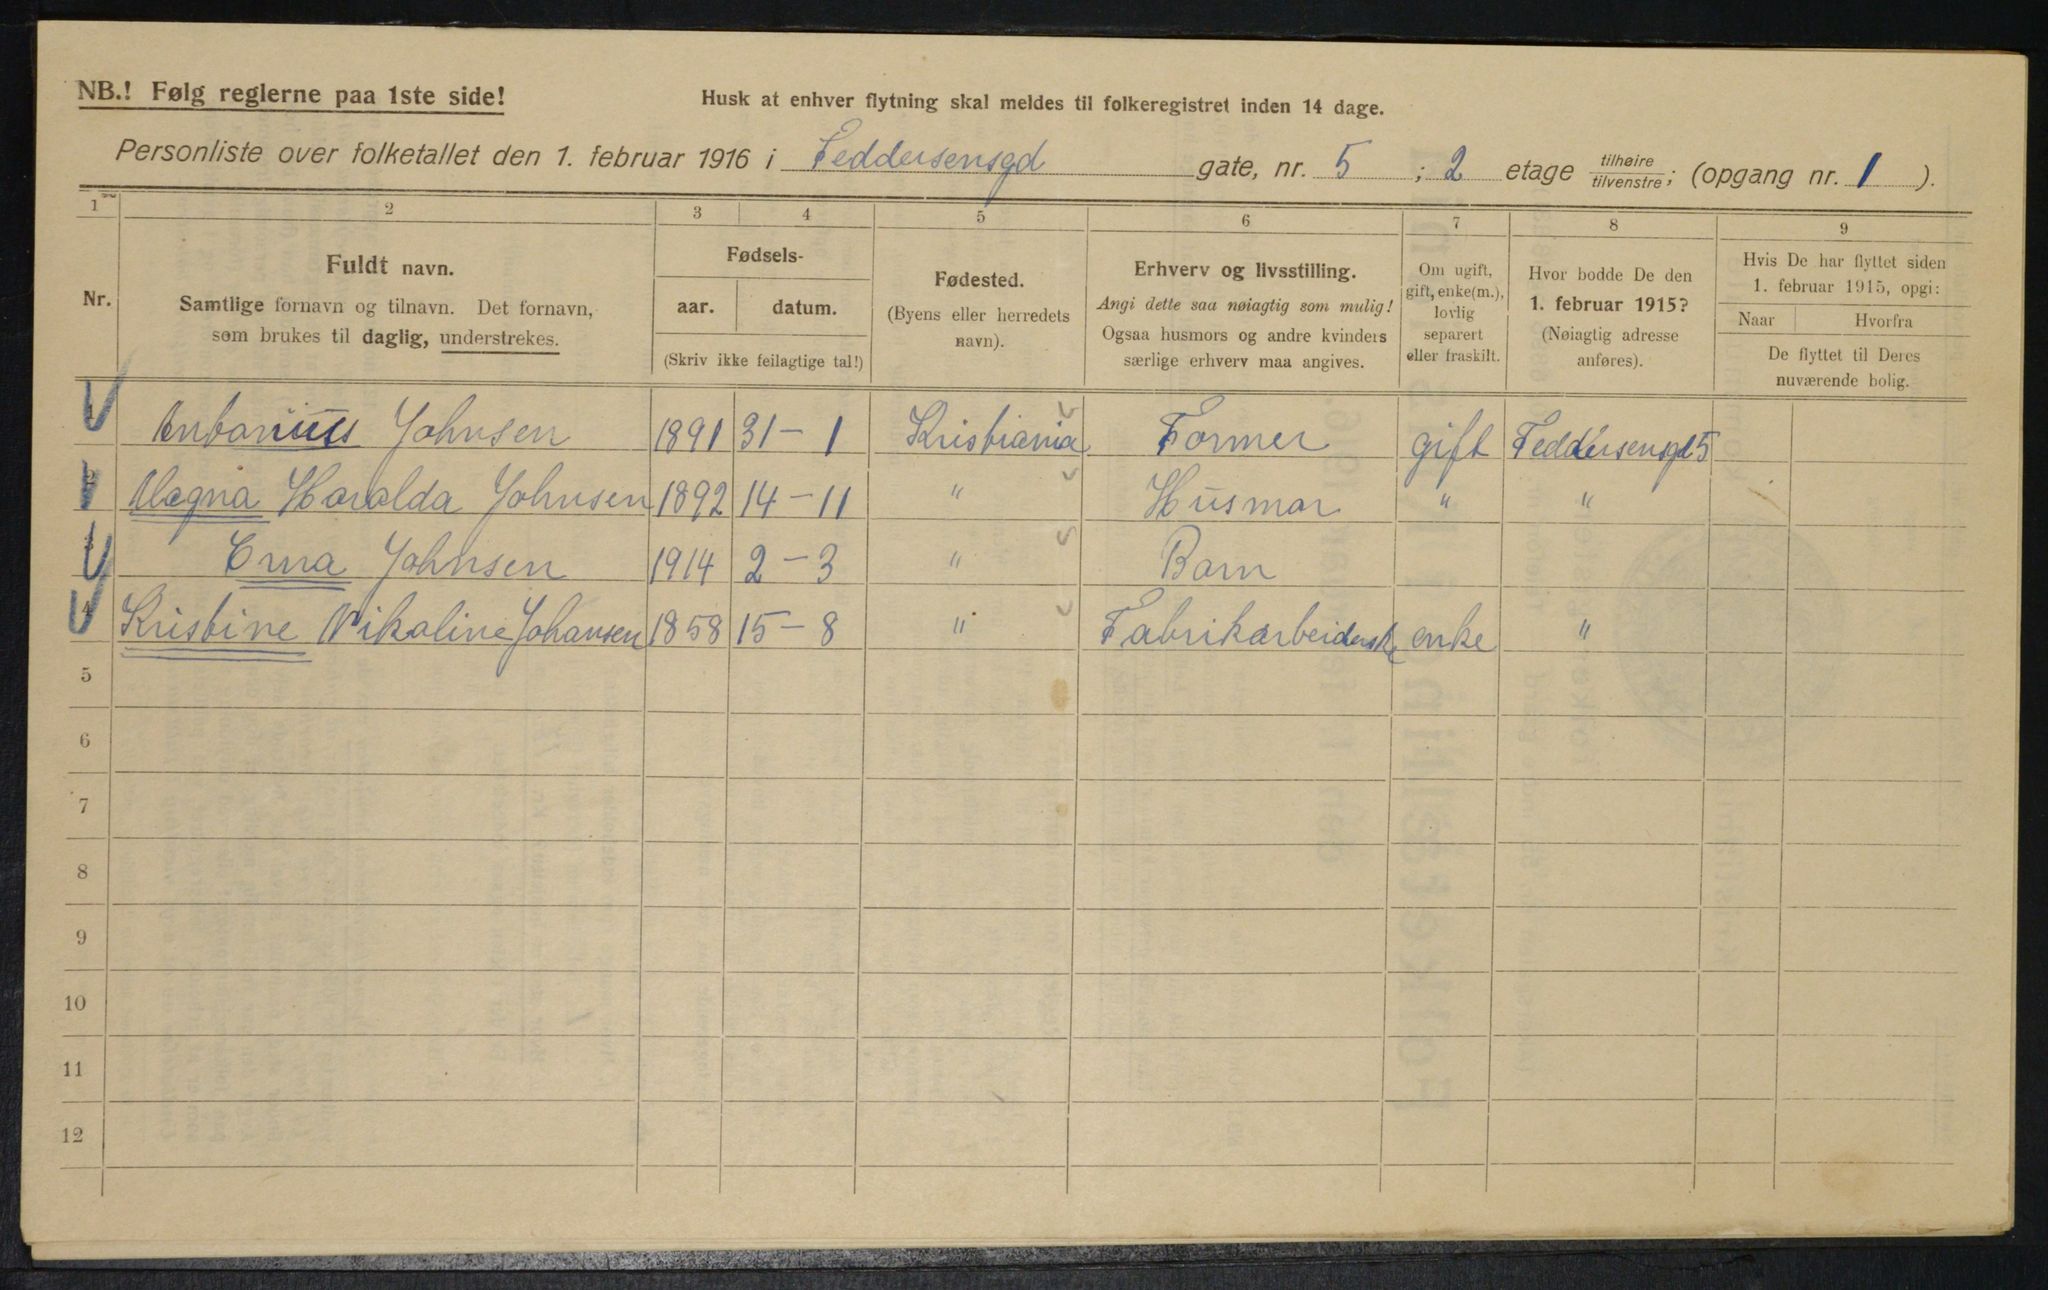 NB.! Følg reglerne paa 1ste side!
Husk at enhver flytning skal meldes til folkeregistret inden 14 dage.
Personliste over folketallet den 1. februar 1916 i Feddersensgd gate, nr. 5 ; 2 etage tilhøire/tilvenstre; (opgang nr. 1 ).
1 2 3 4 5 6 7 8 9
Nr.
Fuldt navn.
Samtlige fornavn og tilnavn. Det fornavn,
som brukes til daglig, understrekes.
Fødsels-
aar. datum.
(Skriv ikke feilagtige tal!)
Fødested.
(Byens eller herredets
navn).
Erhverv og livsstilling.
Angi dette saa nøiagtig som mulig!
Ogsaa husmors og andre kvinders
særlige erhverv maa angives.
Om ugift,
gift, enke(m.),
lovlig
separert
eller fraskilt.
Hvor bodde De den
1. februar 1915?
(Nøiagtig adresse
anføres).
Hvis De har flyttet siden
1. februar 1915, opgi:
Naar Hvorfra
De flyttet til Deres
nuværende bolig.
Antonius Johnsen 1891 31-1 Kristiania Former gift Feddersensgd 5
Magna Haralda Johnsen 1892 14-11 " Husmor " "
Erna Johnsen 1914 2-3 " Barn
4 Kristine Nikoline Johansen 1858 15-8 " Fabrikarbeiderske enke "
5
6
7
8
9
10
11
12